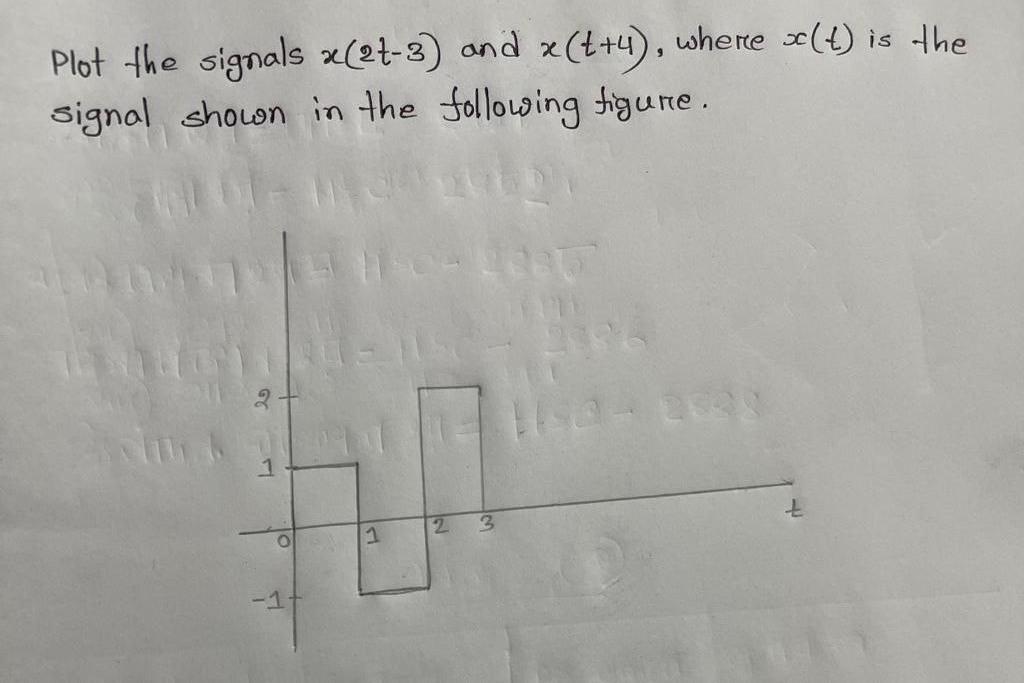 Plot the signals x(2t-3) and x(t+4), where x(t) is the
signal shown in the following figure.
2
1
0
1
2
3
t
-1